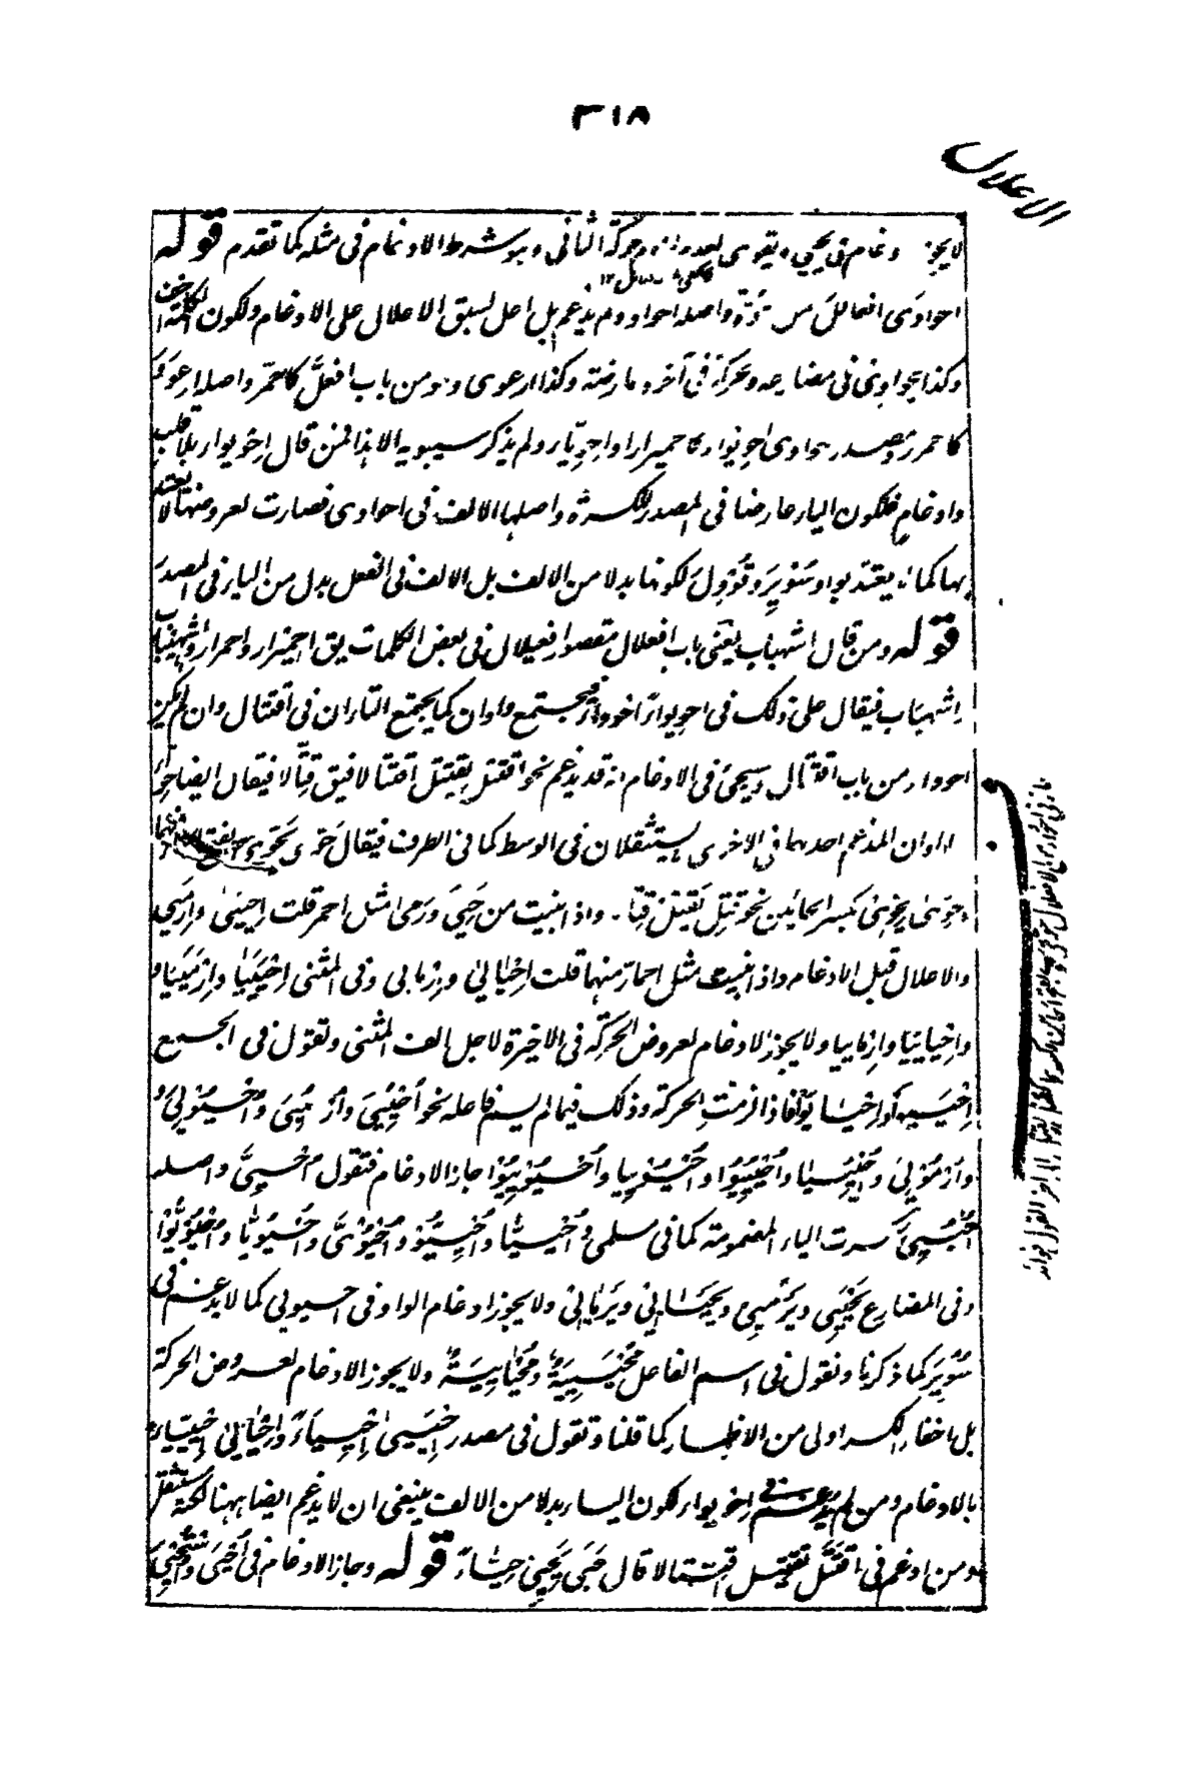 ٣١٨
الاعلال
لا يجوز الادغام فى يحيي ويقوى لعدم لزوم حركة الثانى وهو شرط الادغام فى مثله كما تقدم قوله
احواوى افعالل من الحوة واصله احواوو ولم يدغم بل اعل لسبق الاعلال على الادغام ولكون الكلمة اخف
وكذا يحواوى فى مضارعه وحركة فى آخره عارضة وكذا ارعوى وهو من باب افعلّ كاحمرّ واصله ارعوو
كاحمرر ومصدر احواوى احويواء كاحميرار واحويّاء ولم يذكر سيبويه الا هذا فمن قال احويواء بلا قلب
وادغام فلكون الياء عارضا فى المصدر للكسرة واصلها الالف فى احواوى فصارت لعروضها لا يعتد
بها كما لا يعتد بواو سُوْيِرَ وقُوْوِلَ لكونها بدلا من الالف بل الالف فى الفعل بدل من الياء فى المصدر
قوله ومن قال اشهباب يعنى باب افعلال مقصور افعيلال فى بعض الكلمات يق احميرار واحمرار واشهيباب
اشهباب فيقال على ذلك فى احويواء احوواء فيجتمع واوان كما يجتمع التاءان فى اقتتال وان لم يكن
احوواء من باب اقتتال وسيجئ فى الادغام انه قد يدغم نحو اقتتل يقتتل اقتتالا فيق قتّالا فيقال ايضا حوّاء
الواوان المدغم احدهما فى الاخرى لا يستثقلان فى الوسط كما فى الطرف فيقال حوّى يحوّى بفتح الحاء فيهما
وحِوّى يحِوّى بكسر الحائين نحو قِتّل يقِتّل قِتّالا واذا بنيت من حَيِىَ ورَمى مثل احمر قلت احييى وارميى
والاعلال قبل الادغام واذا بنيت مثل احمارّ منهما قلت احيايى وارمايى وفى المثنى احيييا وارمييا
واحياييا وارماييا ولا يجوز الادغام لعروض الحركة فى الاخيرة لاجل الف المثنى وتقول فى الجمع
احييوا واحيايوا فاذا لزمت الحركة وذلك فيما لم يسم فاعله نحو اُحْيُيِىَ واُرْمُيِىَ واُحْيُوْيِىَ
واُرْمُوْيِىَ واُحْيُيِيا واُحْيُيِيُوا واُحْيُوْيِيا واُحْيُوْيِيُوْا جاز الادغام فتقول اُحْيِىَّ واصله
اُحْيُيِىَ كسرت الياء المضمومة كما فى مسلمىّ واُحْيِيّا واُحْيِيُّوْا واُحْيُوْىَّ واُحْيُوْيّا واُحْيُوْيُّوْا
وفى المضارع يحييى ويرميى ويحيايى ويرمايى ولا يجوز ادغام الواو فى احيويى كما لا يدغم فى
سُوْيِرَ كما ذكرنا وتقول فى اسم الفاعل مُحْيَيِيَةٌ ومُحْيايِيَةٌ ولا يجوز الادغام لعروض الحركة
بل اخفاء الكسر اولى من الاظهار كما قلنا وتقول فى مصدر احييى احيياء واحيايى احييّاء
بالادغام ومن لم يدغم فى احويواء لكون الياء بدلا من الالف ينبغى ان لا يدغم ايضا ههنا لكنه مستثقل
ومن ادغم فى اقتتل يقتتل اقتتالا قال حَيّى يَحَيّى حِيّاءً قوله وجاز الادغام فى اُحْيِىَ واستُحْيِىَ